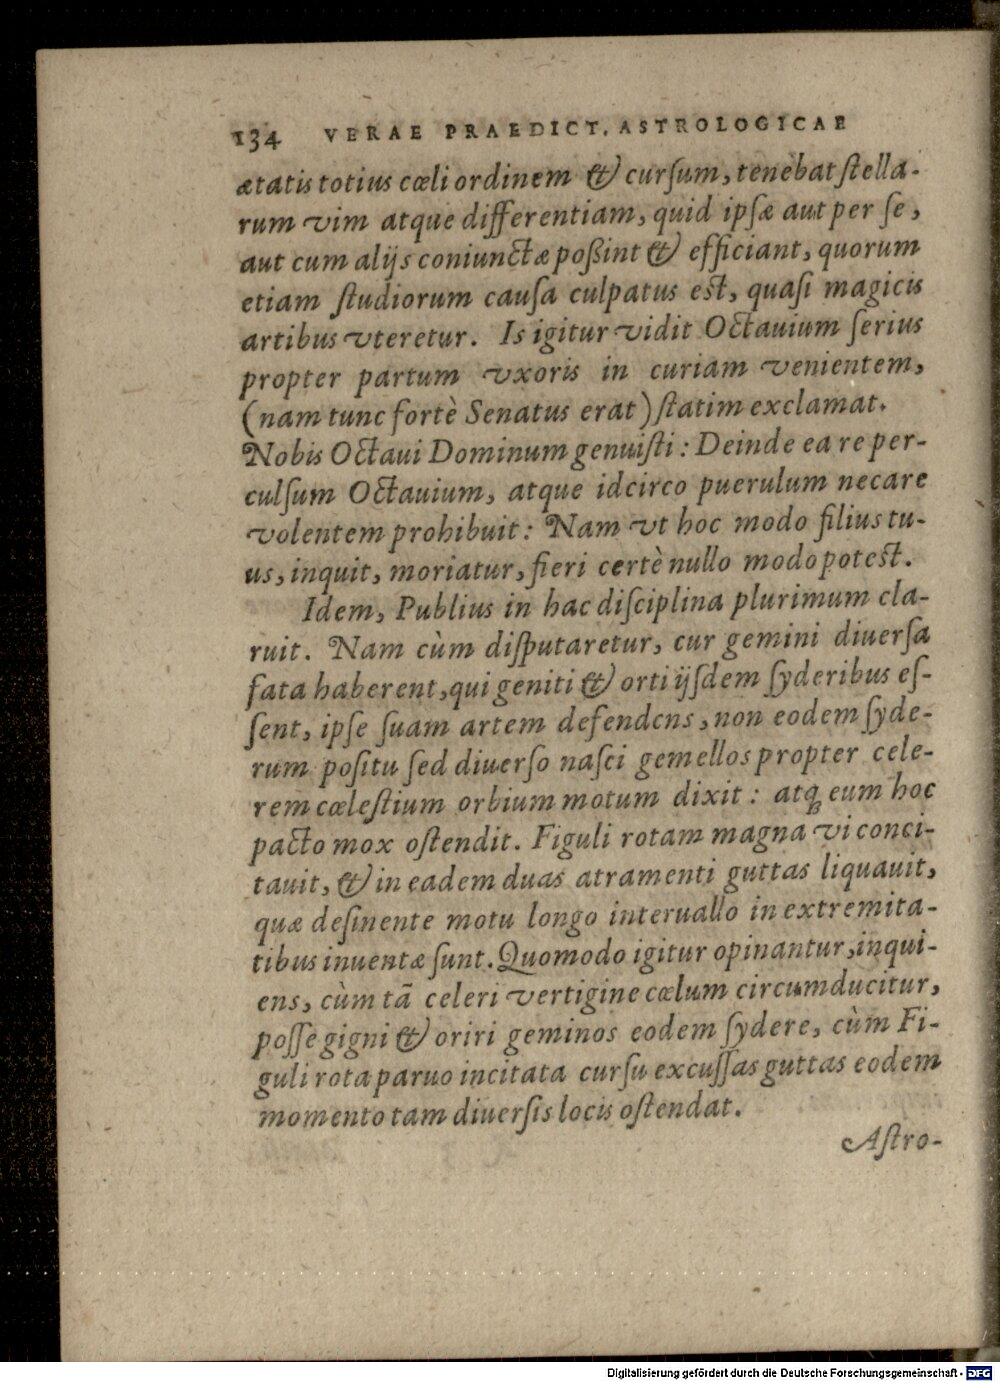 134 VERAE PRAEDICT. ASTROLOGICAE
ætatis totius cœli ordinem & cursum, tenebat stella-
rum vim atque differentiam, quid ipsæ aut per se,
aut cum alijs coniunctæ poßint & efficiant, quorum
etiam studiorum causa culpatus est, quasi magicis
artibus vteretur. Is igitur vidit Octauium serius
propter partum vxoris in curiam venientem,
(nam tunc fortè Senatus erat) statim exclamat.
Nobis Octaui Dominum genuisti: Deinde ea re per-
culsum Octauium, atque idcirco puerulum necare
volentem prohibuit: Nam vt hoc modo filius tu-
us, inquit, moriatur, fieri certè nullo modo potest.
Idem, Publius in hac disciplina plurimum cla-
ruit. Nam cùm disputaretur, cur gemini diuersa
fata haberent, qui geniti & orti ijsdem syderibus es-
sent, ipse suam artem defendens, non eodem syde-
rum positu sed diuerso nasci gemellos propter cele-
rem cælestium orbium motum dixit: atq; eum hoc
pacto mox ostendit. Figuli rotam magna vi conci-
tauit, & in eadem duas atramenti guttas liquauit,
quæ desinente motu longo interuallo in extremita-
tibus inuentæ sunt. Quomodo igitur opinantur, inqui-
ens, cùm tā celeri vertigine cælum circumducitur,
posse gigni & oriri geminos eodem sydere, cùm Fi-
guli rota paruo incitata cursu excussas guttas eodem
momento tam diuersis locis ostendat.
Astro-
Digitalisierung gefördert durch die Deutsche Forschungsgemeinschaft - DFG